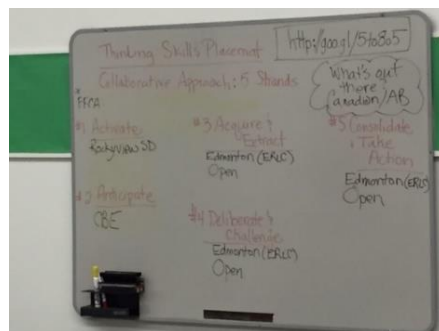 Thinking Skills Placemat
http://goo.gl/5to8o5
Collaborative Approach: 5 Strands
What's out
there
Canadian/AB
FFCA
#1 Activate
Rockyview SD
#2 Anticipate
CBE
#3 Acquire &
Extract
Edmonton (ERLC)
Open
#4 Deliberate &
Challenge
Edmonton (ERLC)
Open
#5 Consolidate
& Take
Action
Edmonton (ERLC)
Open